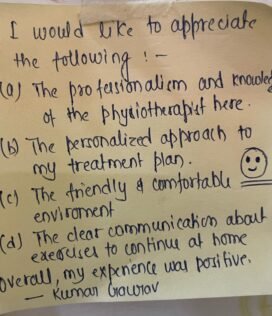 I would like to appreciate
the following :-
(a) The professionalism and knowled
of the physiotherapist here.
(b) The personalized approach to
my treatment plan.
(c) The friendly & comfortable
enviroment
(d) The clear communication about
exercises to continue at home
Overall, my experience was positive.
- Kumar Gaurav